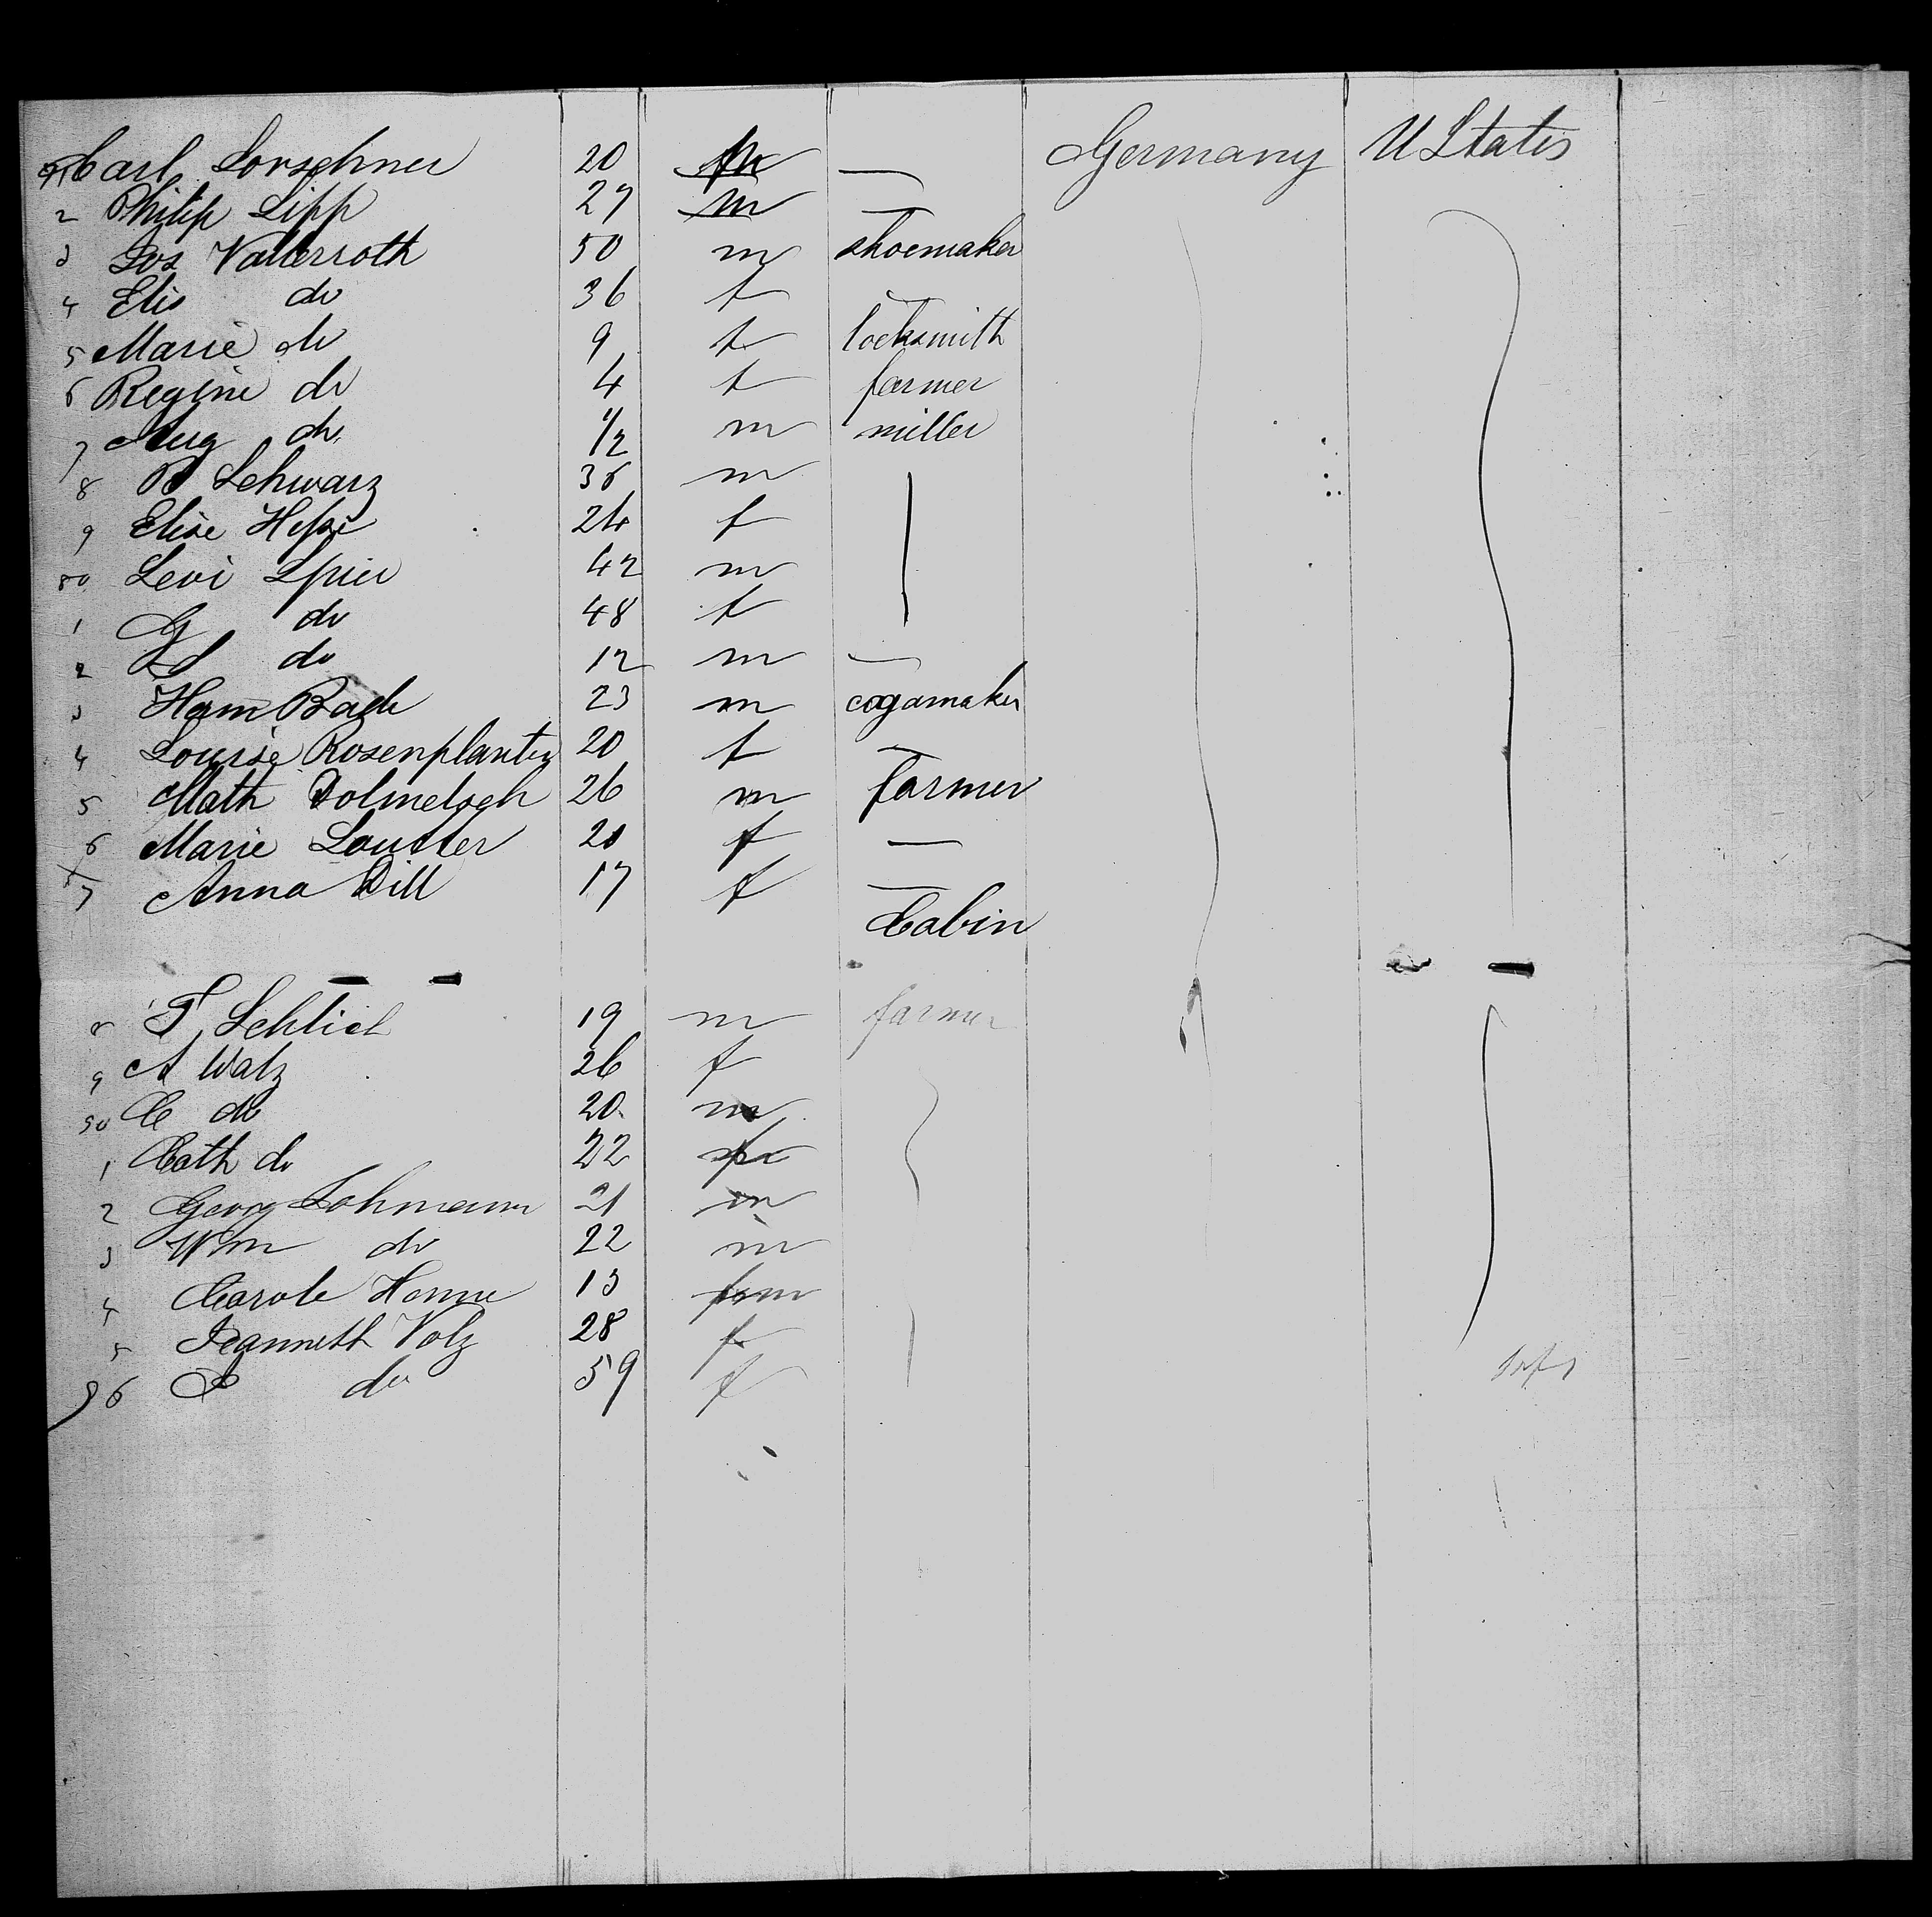 71 Carl Lorschner 20 m — Germany U States
2 Philip Lipp 27 m —
3 Jos Vatterroth 50 m shoemaker
4 Elis do 36 f —
5 Marie do 9 f locksmith
6 Regine do 4 f farmer
7 Aug do 1/2 m miller
8 B Schwarz 36 m
9 Elise Hesse 24 f
80 Levi Spier 42 m
1 G do 48 f
2 do 12 m —
3 Herm Bach 23 m cogamaker
4 Louise Rosenplanter 20 f —
5 Math Dolmetsch 26 m farmer
6 Marie Lautter 20 f —
7 Anna Dill 17 f —
Cabin
8 F Schlich 19 m farmer
9 A Walz 26 f
90 C do 20 m
1 Cath do 22
2 Georg Lohmann 21 m
3 Wm do 22 m
4 Carole Horne 13
5 Jeanneth Volz 28 f
96 do 59 f